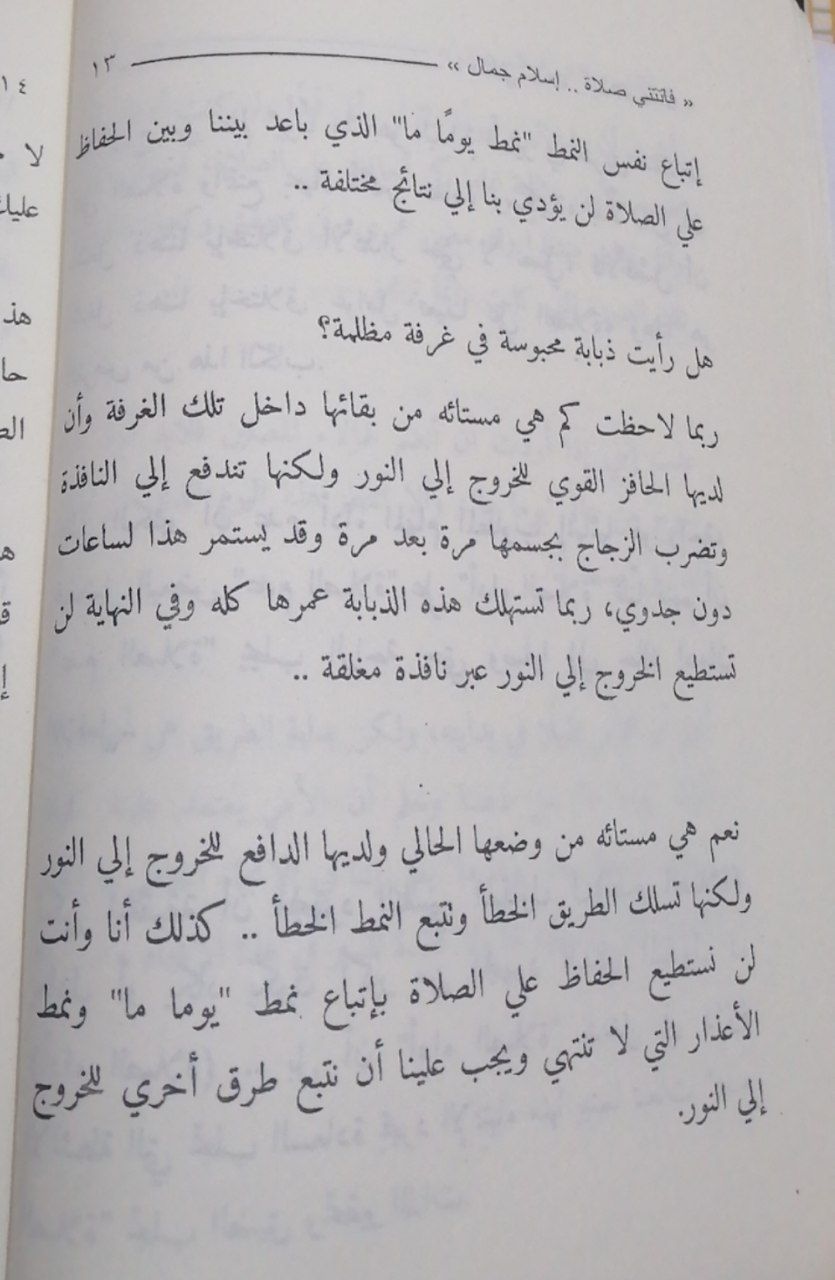 « فاتتني صلاة .. إسلام جمال »
١٣
إتباع نفس النمط "نمط يومًا ما" الذي باعد بيننا وبين الحفاظ
علي الصلاة لن يؤدي بنا إلي نتائج مختلفة ..
هل رأيت ذبابة محبوسة في غرفة مظلمة؟
ربما لاحظت كم هي مستائه من بقائها داخل تلك الغرفة وأن
لديها الحافز القوي للخروج إلي النور ولكنها تندفع إلي النافذة
وتضرب الزجاج بجسمها مرة بعد مرة وقد يستمر هذا لساعات
دون جدوي، ربما تستهلك هذه الذبابة عمرها كله وفي النهاية لن
تستطيع الخروج إلي النور عبر نافذة مغلقة ..
نعم هي مستائه من وضعها الحالي ولديها الدافع للخروج إلي النور
ولكنها تسلك الطريق الخطأ وتتبع النمط الخطأ .. كذلك أنا وأنت
لن نستطيع الحفاظ علي الصلاة بإتباع نمط "يوما ما" ونمط
الأعذار التي لا تنتهي ويجب علينا أن نتبع طرق أخري للخروج
إلي النور.
١٤
لا
هذ
حا